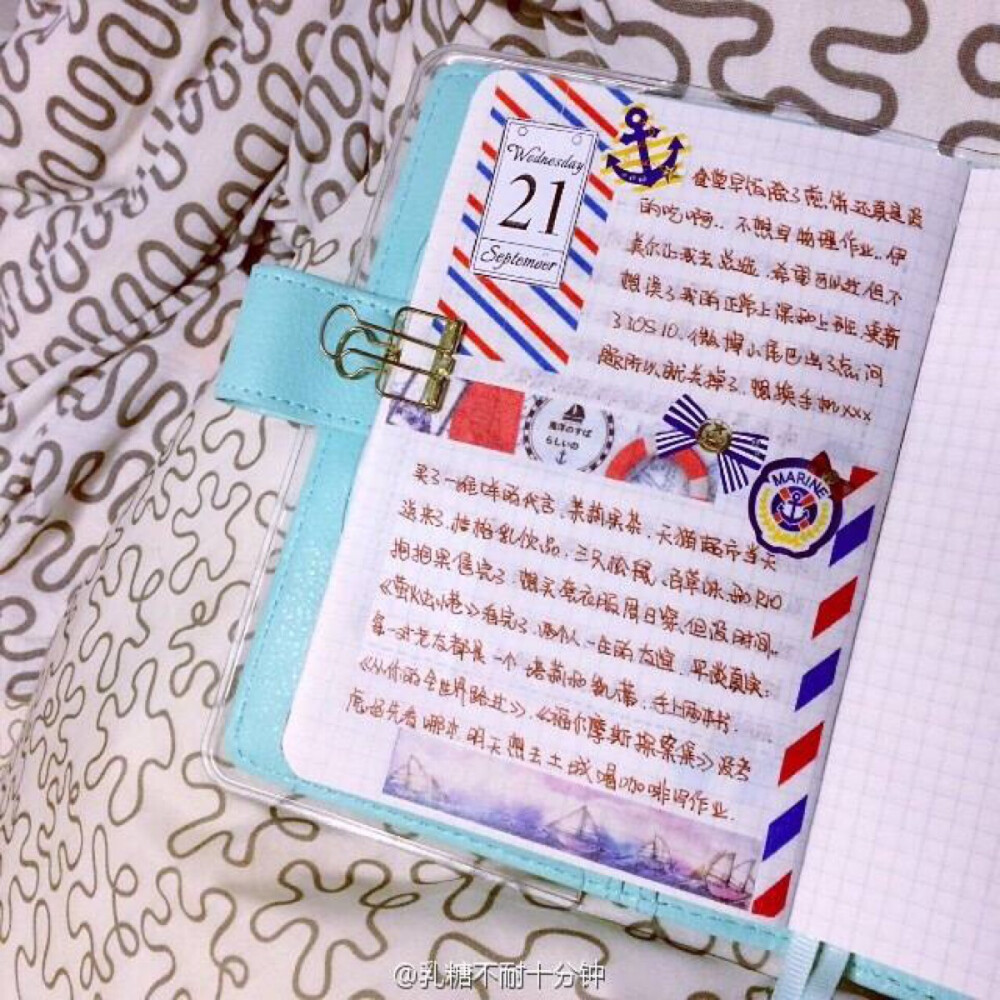 Wednesday
21
September
食堂早饭做了煎饼还真是蛮
的吃啊.. 不想写物理作业.. 伊
美尔让我去总监, 希望可以放但不
想误了我的正常上课和上班. 更新
3.30S10. 微博小尾巴出了点问
题所以就关掉了. 想换手机xxx
海洋のすば
らしいの
MARINE
买了一堆咩的代言, 茉莉果茶, 天猫超市当天
送来了. 格格乳饮品, 三只松鼠, 百草味和RIO
抱抱果售完了. 想买套衣服周日穿, 但没时间..
《萤火虫小巷》看完了, 两个人一生的友谊, 平淡真实;
每一对老友都是一个塔莉和凯蒂. 手上两本书
《从你的全世界路过》, 《福尔摩斯探案集》没考
虑好先看哪本 明天想去土城喝咖啡写作业.
@乳糖不耐十分钟